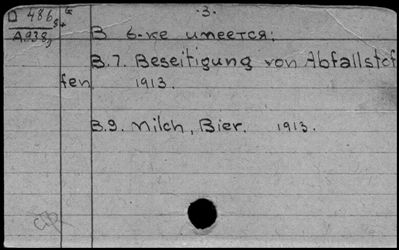 D 486
A938
- 3. -
В б-ке имеется:
B.7. Beseitigung von Abfallstof
fen 1913.
B.9. Milch, Bier. 1913.